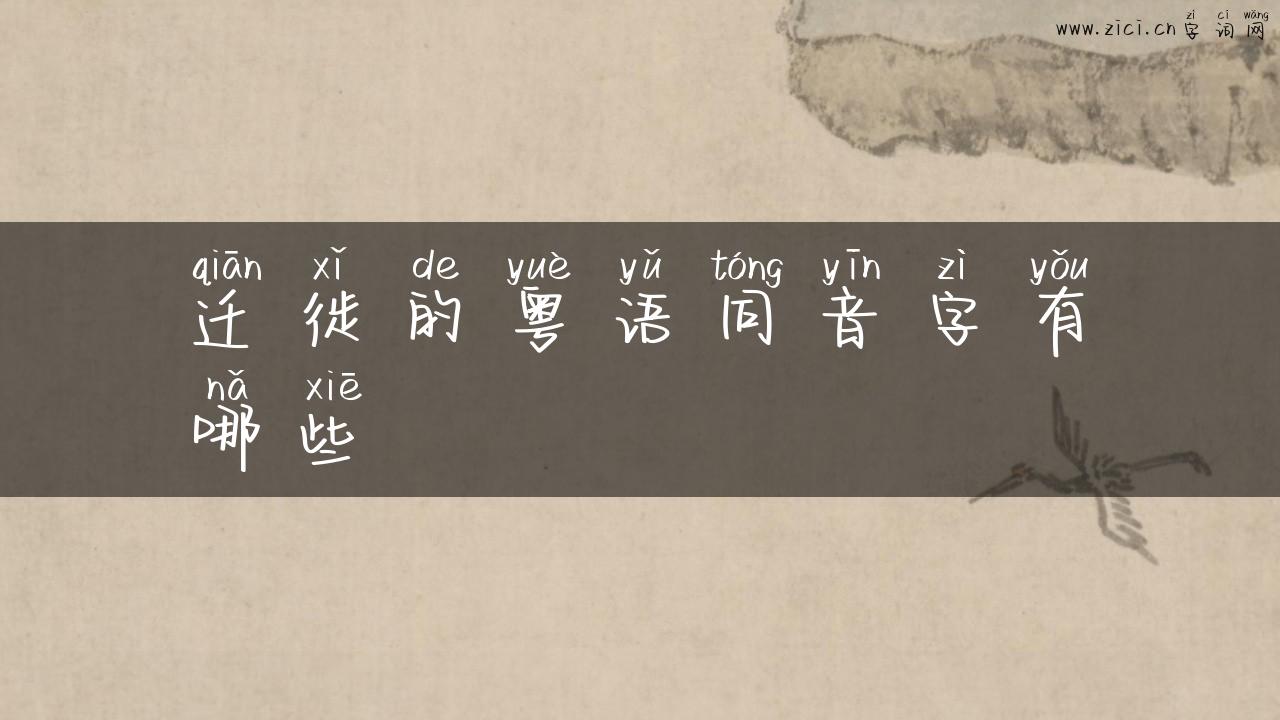 zì cí wǎng
www.zici.cn字词网
qiān xǐ de yuè yǔ tóng yīn zì yǒu
迁徙的粤语同音字有
nǎ xiē
哪些